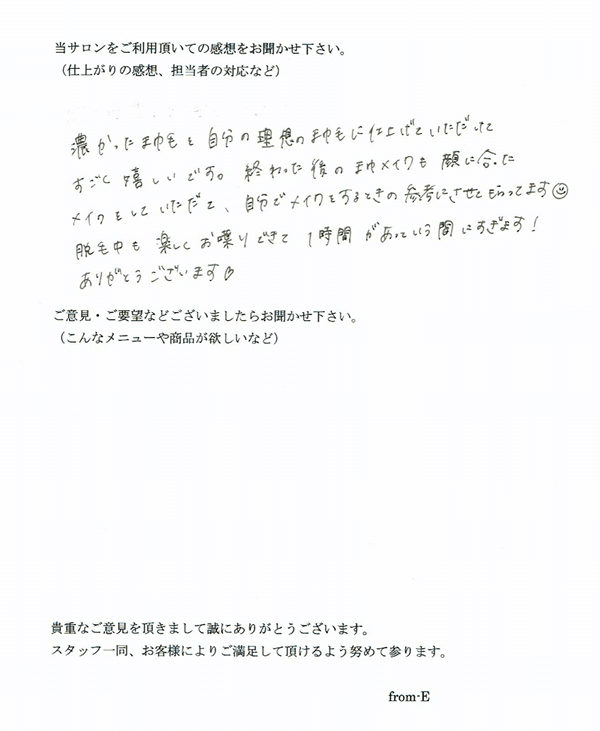 当サロンをご利用頂いての感想をお聞かせ下さい。
（仕上がりの感想、担当者の対応など）
濃かったまゆ毛を自分の理想のまゆ毛に仕上げていただけて
すごく嬉しいです。終わった後のまゆメイクも顔に合った
メイクをしていただて、自分でメイクをするときの参考にさせてもらってます☺
脱毛中も楽しくお喋りできて1時間があっという間にすぎます！
ありがとうございます♡
ご意見・ご要望などございましたらお聞かせ下さい。
（こんなメニューや商品が欲しいなど）
貴重なご意見を頂きまして誠にありがとうございます。
スタッフ一同、お客様によりご満足して頂けるよう努めて参ります。
from-E